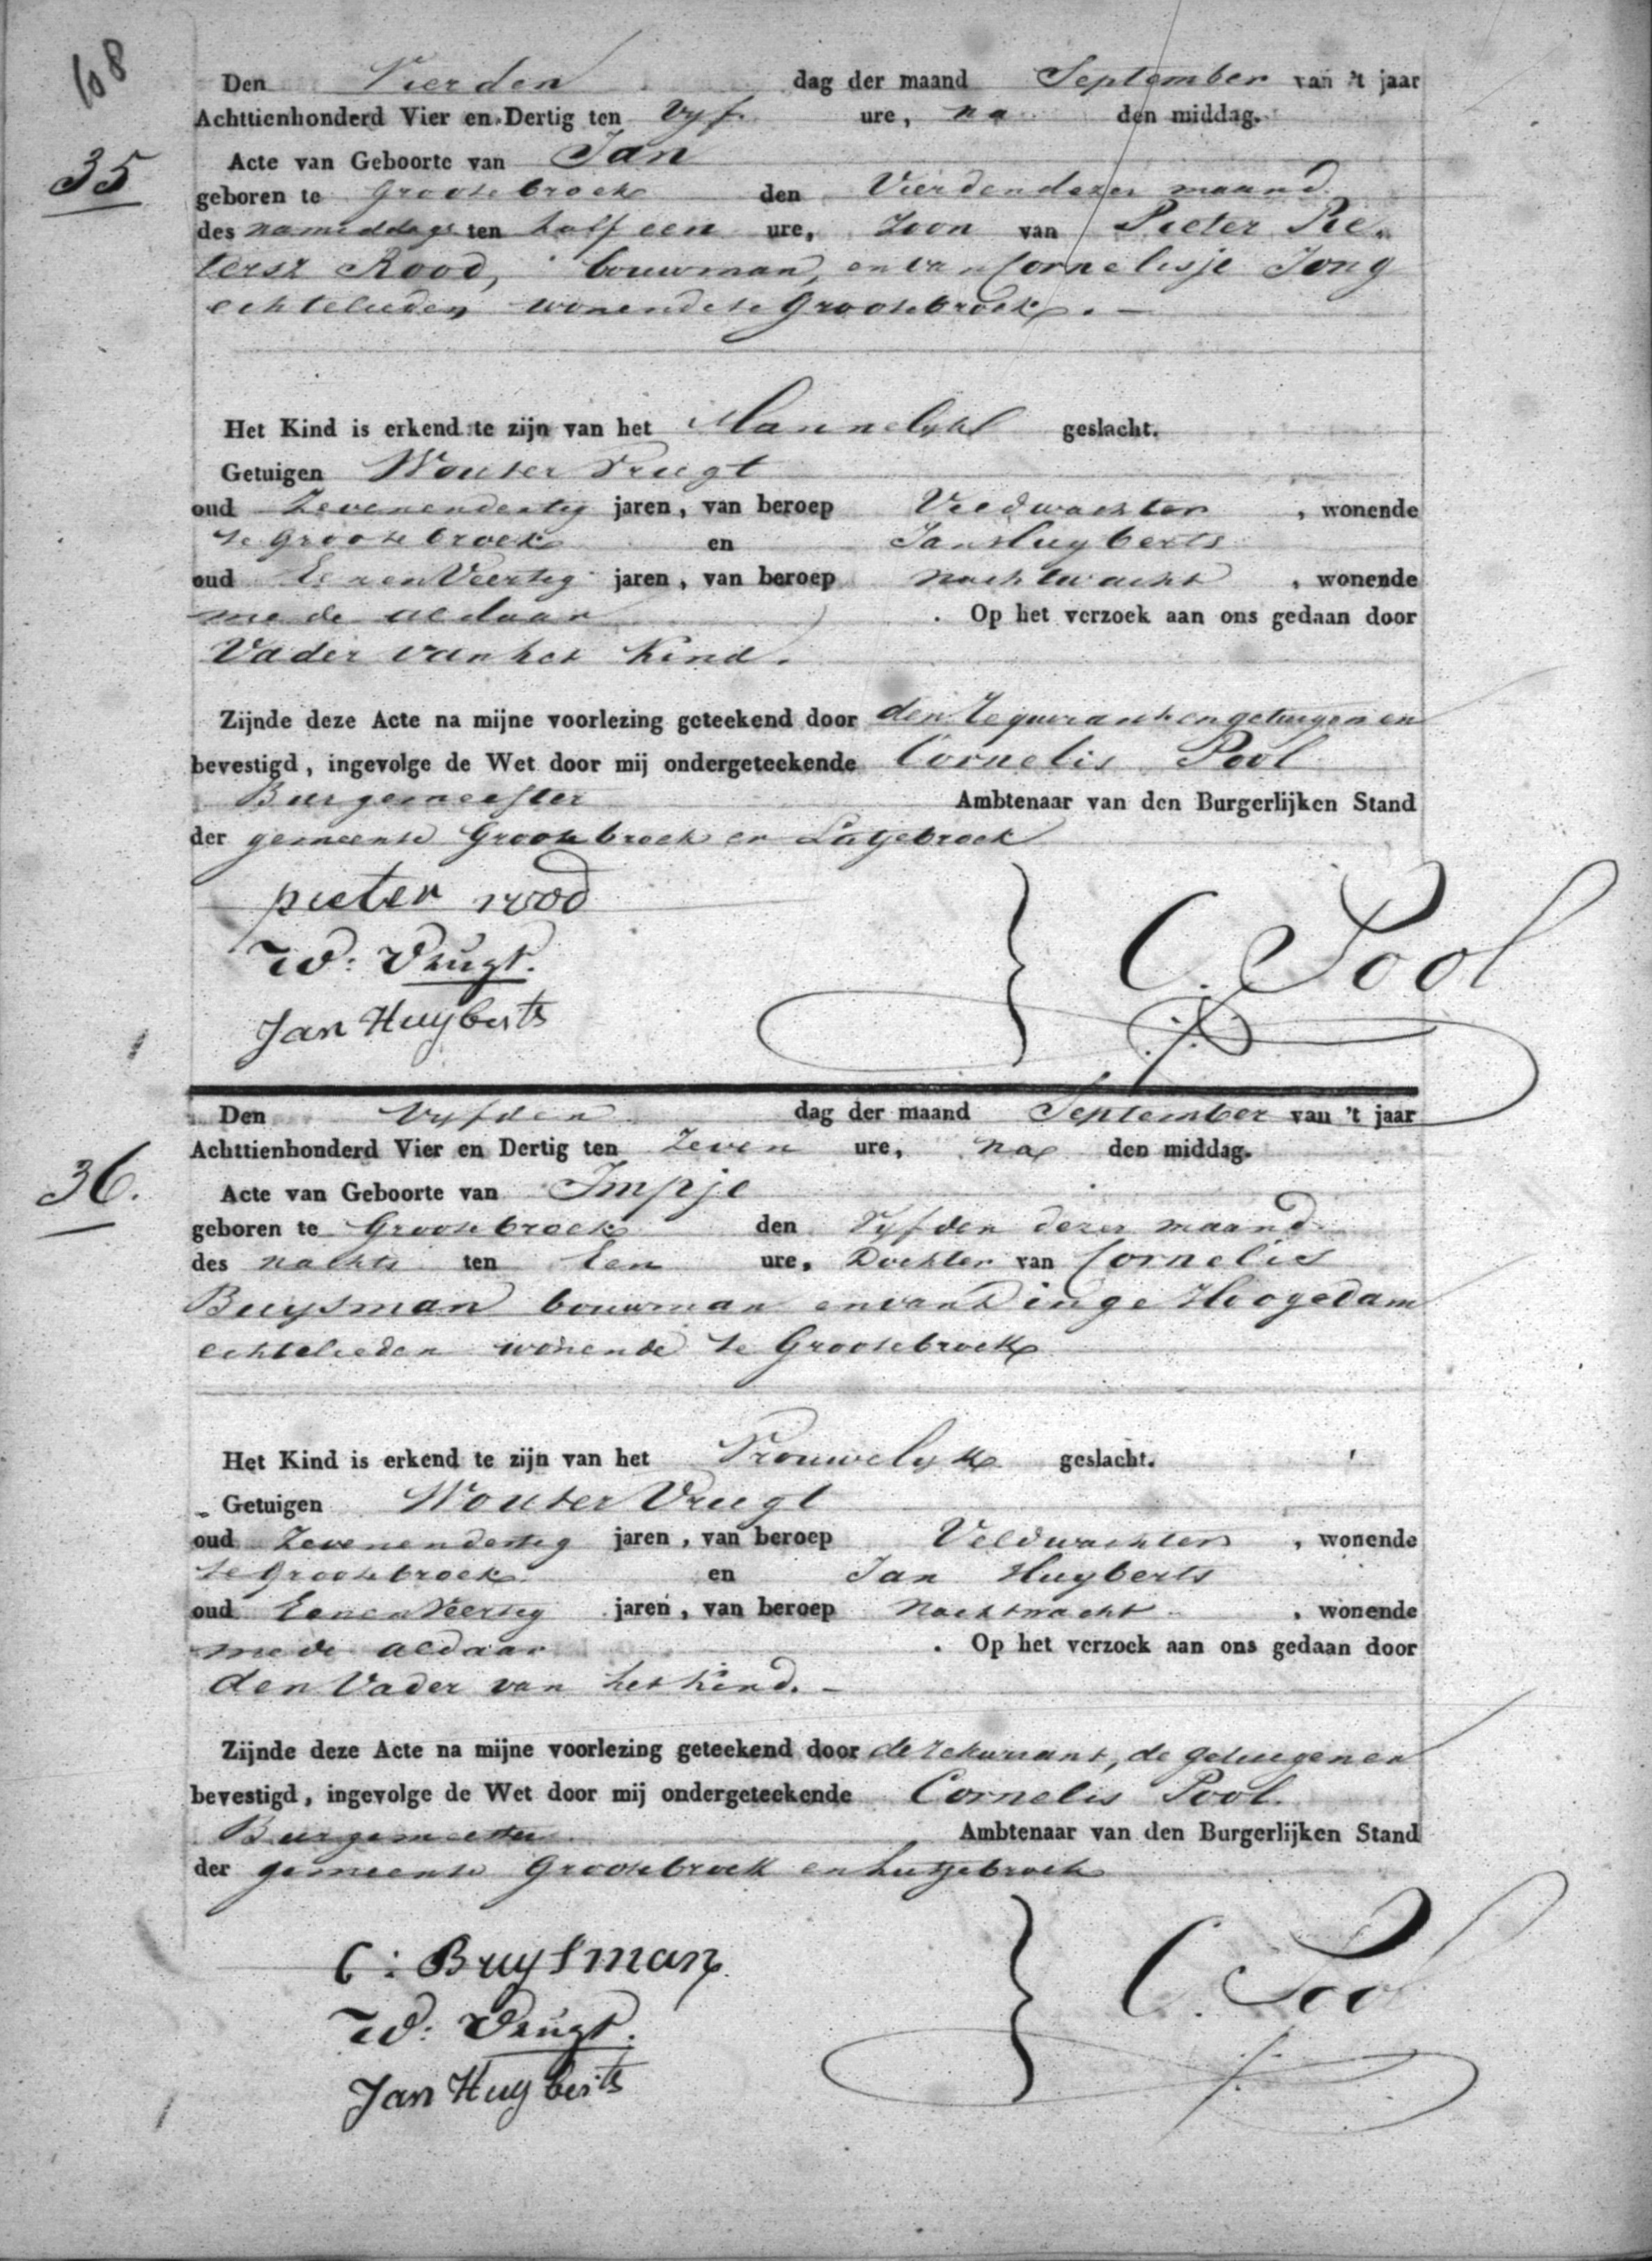 108
Den Vierden dag der maand September van 't jaar
Achttienhonderd Vier en Dertig ten vyf ure, na den middag.
35
Acte van Geboorte van Jan
geboren te Grootebroek den Vierden dezer maand
des namiddags ten half een ure, zoon van Pieter Pie-
tersz Rood, bouwman, en van Cornelisje Jong
echtelieden wonende te Grootebroek. —
Het Kind is erkend te zijn van het Mannelyk geslacht.
Getuigen Wouter Vrugt
oud Zevenendertig jaren, van beroep Veldwachter, wonende
te Grootebroek en Jan Huyberts
oud Een en Veertig jaren, van beroep Nachtwacht, wonende
mede aldaar. Op het verzoek aan ons gedaan door
Vader van het Kind.
Zijnde deze Acte na mijne voorlezing geteekend door den getuigen en
bevestigd, ingevolge de Wet door mij ondergeteekende Cornelis Pool
Burgemeester Ambtenaar van den Burgerlijken Stand
der gemeente Grootebroek en Lutjebroek
pieter rood
W: Vrugt.
Jan Huyberts
C. Pool
Den Vyfden dag der maand September van 't jaar
Achttienhonderd Vier en Dertig ten Zeven ure, na den middag.
36.
Acte van Geboorte van Impje
geboren te Grootebroek den Vyfden dezer maand
des nachts ten Een ure, Dochter van Cornelis
Buysman bouwman en van Dinge Hoogedam
echtelieden wonende te Grootebroek
Het Kind is erkend te zijn van het Vrouwelyk geslacht.
Getuigen Wouter Vrugt
oud Zevenendertig jaren, van beroep Veldwachter, wonende
te Grootebroek en Jan Huyberts
oud Eenen Veertig jaren, van beroep Nachtwacht, wonende
mede aldaar. Op het verzoek aan ons gedaan door
den Vader van het Kind. —
Zijnde deze Acte na mijne voorlezing geteekend door de rekurant, de getuigen en
bevestigd, ingevolge de Wet door mij ondergeteekende Cornelis Pool
Burgemeester Ambtenaar van den Burgerlijken Stand
der gemeente Grootebroek en Lutjebroek
C: Buysman
W: Vrugt.
Jan Huyberts
C. Pool